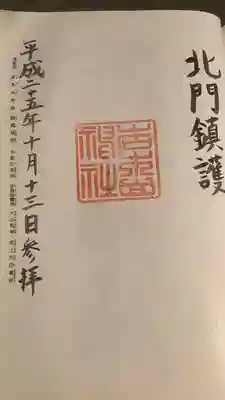 北門鎮護
古四王
神社
平成二十五年十月十三日参拝